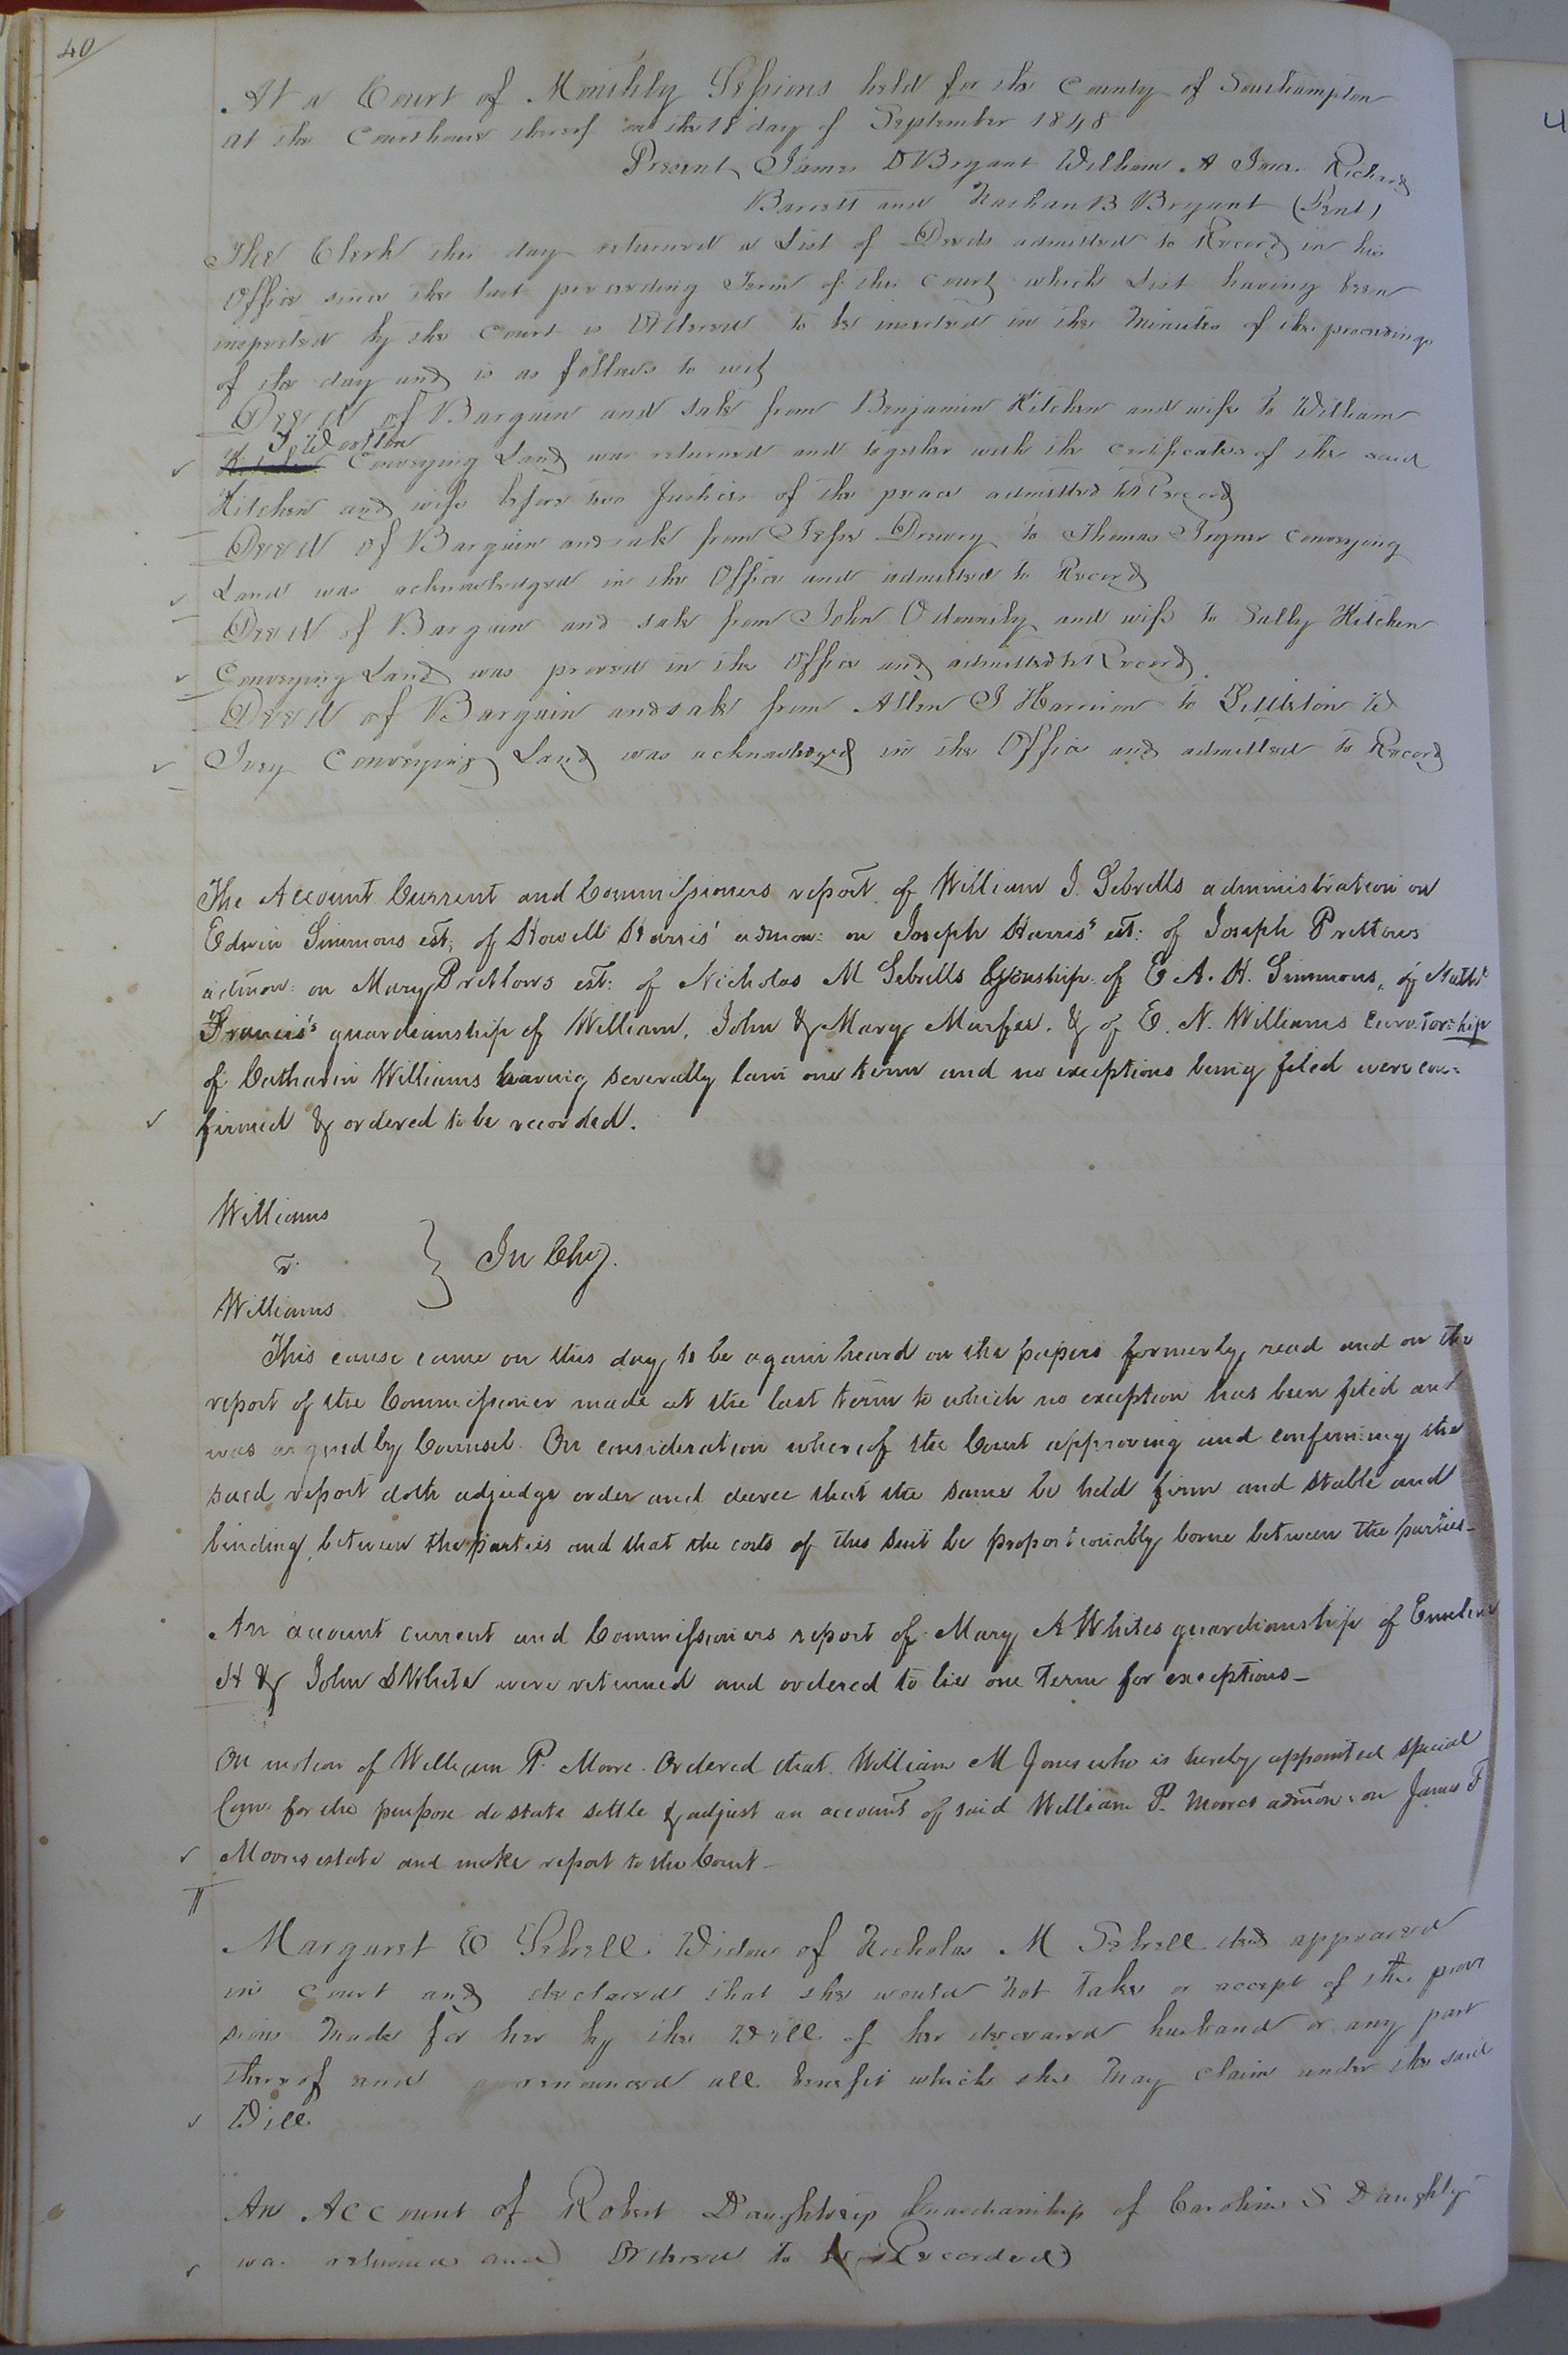 40
At a Court of Monthly Sessions held for the County of Southampton
at the Courthouse thereof on the 18 day of September 1848
Present James D Bryant William A Jones Richard
Barrett and Nathan B Bryant (Gent)
The Clerk this day returned a List of Deeds admitted to Record in his
Office since the last preceeding Term of this Court which List having been
inspected by the Court is Ordered to be inserted in the Minutes of the proceedings
of the day and is as follows to wit
Deed of Bargain and sale from Benjamin Kitchen and wife to William
Wootton
Conveying Land was returned and together with the certificates of the said
Kitchen and wife before two Justices of the peace admitted to Record
Deed of Bargain and sale from Jesse Drewry to Thomas Joyner Conveying
Land was acknowledged in the Office and admitted to Record
Deed of Bargain and sale from John and wife to Sally Kitchen
Conveying Land was proved in the Office and admitted to Record
Deed of Bargain and sale from Allen J Harrison to Littleton W
Ivey Conveying Land was acknowledged in the Office and admitted to Record
The Account Current and Commissioners report of William J. Sebrells administration on
Edwin Simmons est: of Howell Harris' admon: on Joseph Harris' est: of Joseph Pretlows
admon: on Mary Pretlows est: of Nicholas M Sebrells Gdnship of E A. H. Simmons, of Nathl
Francis's guardianship of William, John & Mary Murfee. & of E. N. Williams Curatorship
of Catharin Williams having severally lain one term and no exceptions being filed were con=
firmed & ordered to be recorded.
Williams
v.
In Chy.
Williams
This cause came on this day to be again heard on the papers formerly read and on the
report of the Commissioner made at the last term to which no exception has been filed and
was argued by Counsel. On consideration whereof the Court approving and confirming the
said report doth adjudge order and decree that the same be held firm and stable and
binding between the parties and that the costs of this suit be proportionably borne between the parties-
An account current and Commissioners report of Mary A Whites guardianship of Emeline
H & John S White were returned and ordered to lie one Term for exceptions-
On motion of William P. Moore. Ordered that William M Jones who is hereby appointed special
Com: for the purpose do state settle & adjust an account of said William P. Moores admon: on James F
Moores estate and make report to the Court-
Margaret E Sebrell Widow of Nicholas M Sebrell decd appeared
in Court and declared that she would not take or accept of the provi
sions made for her by the Will of her deceased husband or any part
thereof and renounced all benefit which she may claim under the said
Will
An Account of Robert Daughtreys Guardianship of Caroline S Daughtry
was returned and Ordered to be Recorded